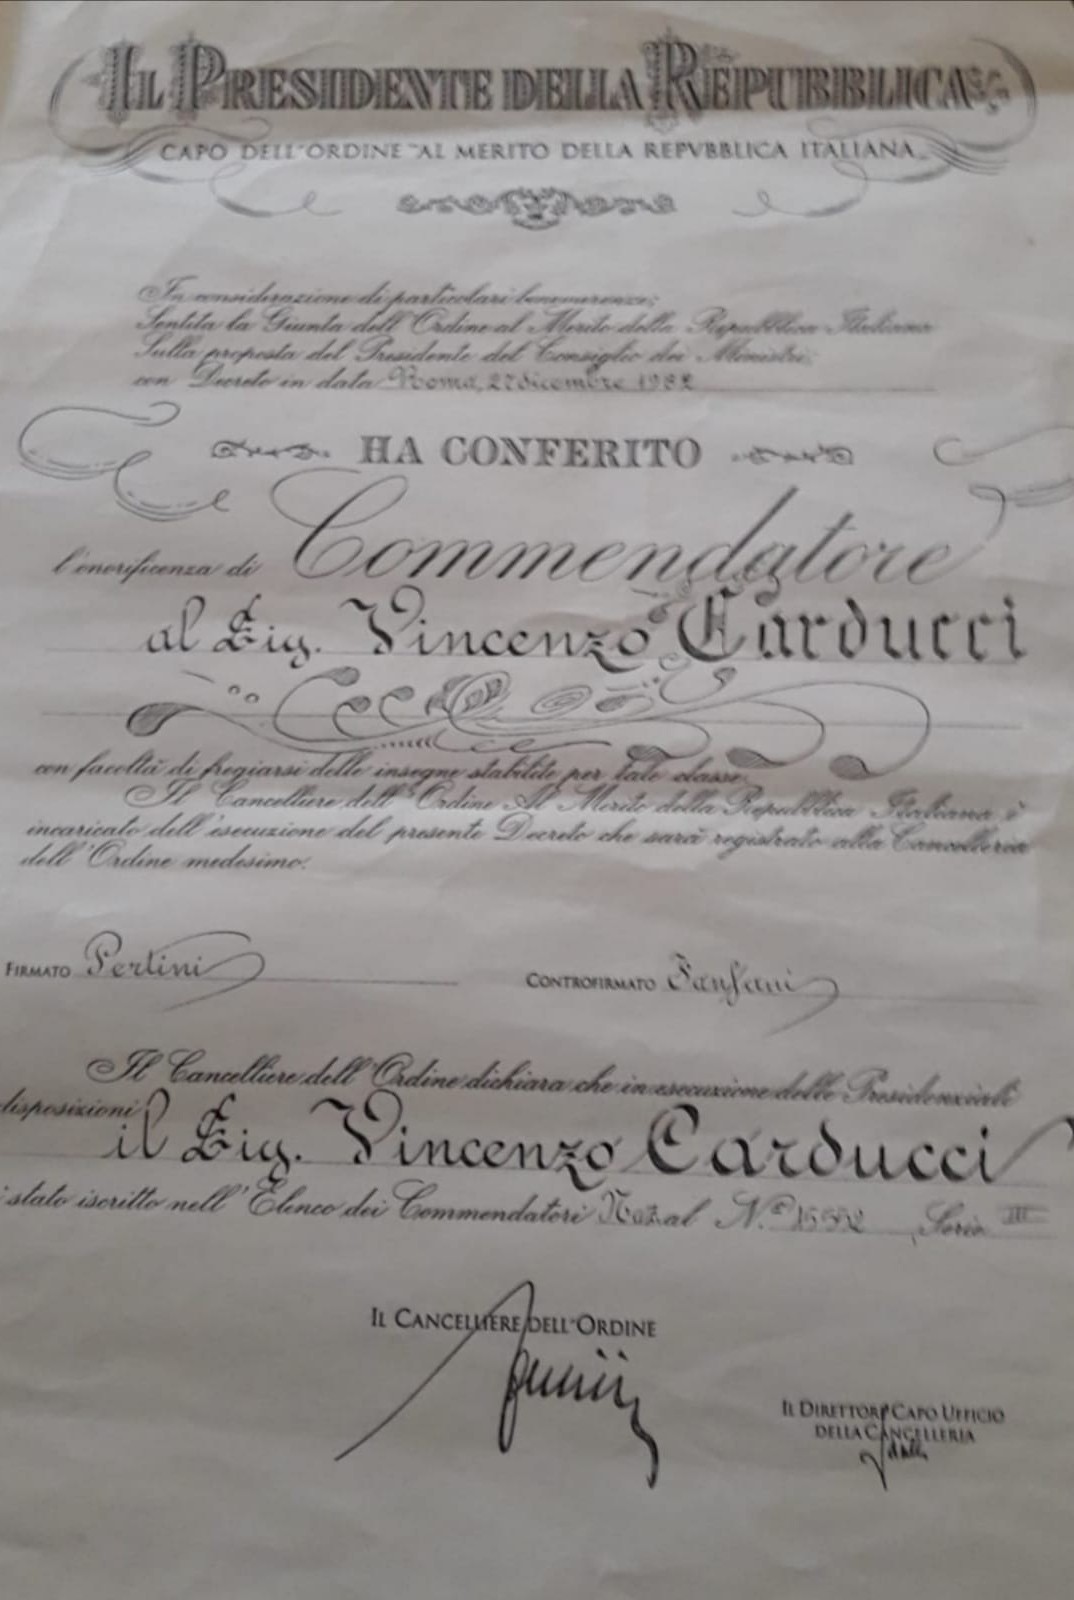 IL PRESIDENTE DELLA REPUBBLICA
CAPO DELL'ORDINE "AL MERITO DELLA REPVBBLICA ITALIANA"
In considerazione di particolari benemerenze;
Sentita la Giunta dell'Ordine al Merito della Repubblica Italiana
Sulla proposta del Presidente del Consiglio dei Ministri:
con Decreto in data Roma, 27 dicembre 1982
HA CONFERITO
l'onorificenza di Commendatore
al Sig. Vincenzo Carducci
con facoltà di fregiarsi delle insegne stabilite per tale classe.
Il Cancelliere dell'Ordine Al Merito della Repubblica Italiana è
incaricato dell'esecuzione del presente Decreto che sarà registrato alla Cancelleria
dell'Ordine medesimo.
FIRMATO Pertini CONTROFIRMATO Fanfani
Il Cancelliere dell'Ordine dichiara che in esecuzione delle Presidenziali
disposizioni il Sig. Vincenzo Carducci
stato iscritto nell'Elenco dei Commendatori Naz. al N.° 15552, Serie III
IL CANCELLIERE DELL'ORDINE
IL DIRETTORE CAPO UFFICIO
DELLA CANCELLERIA